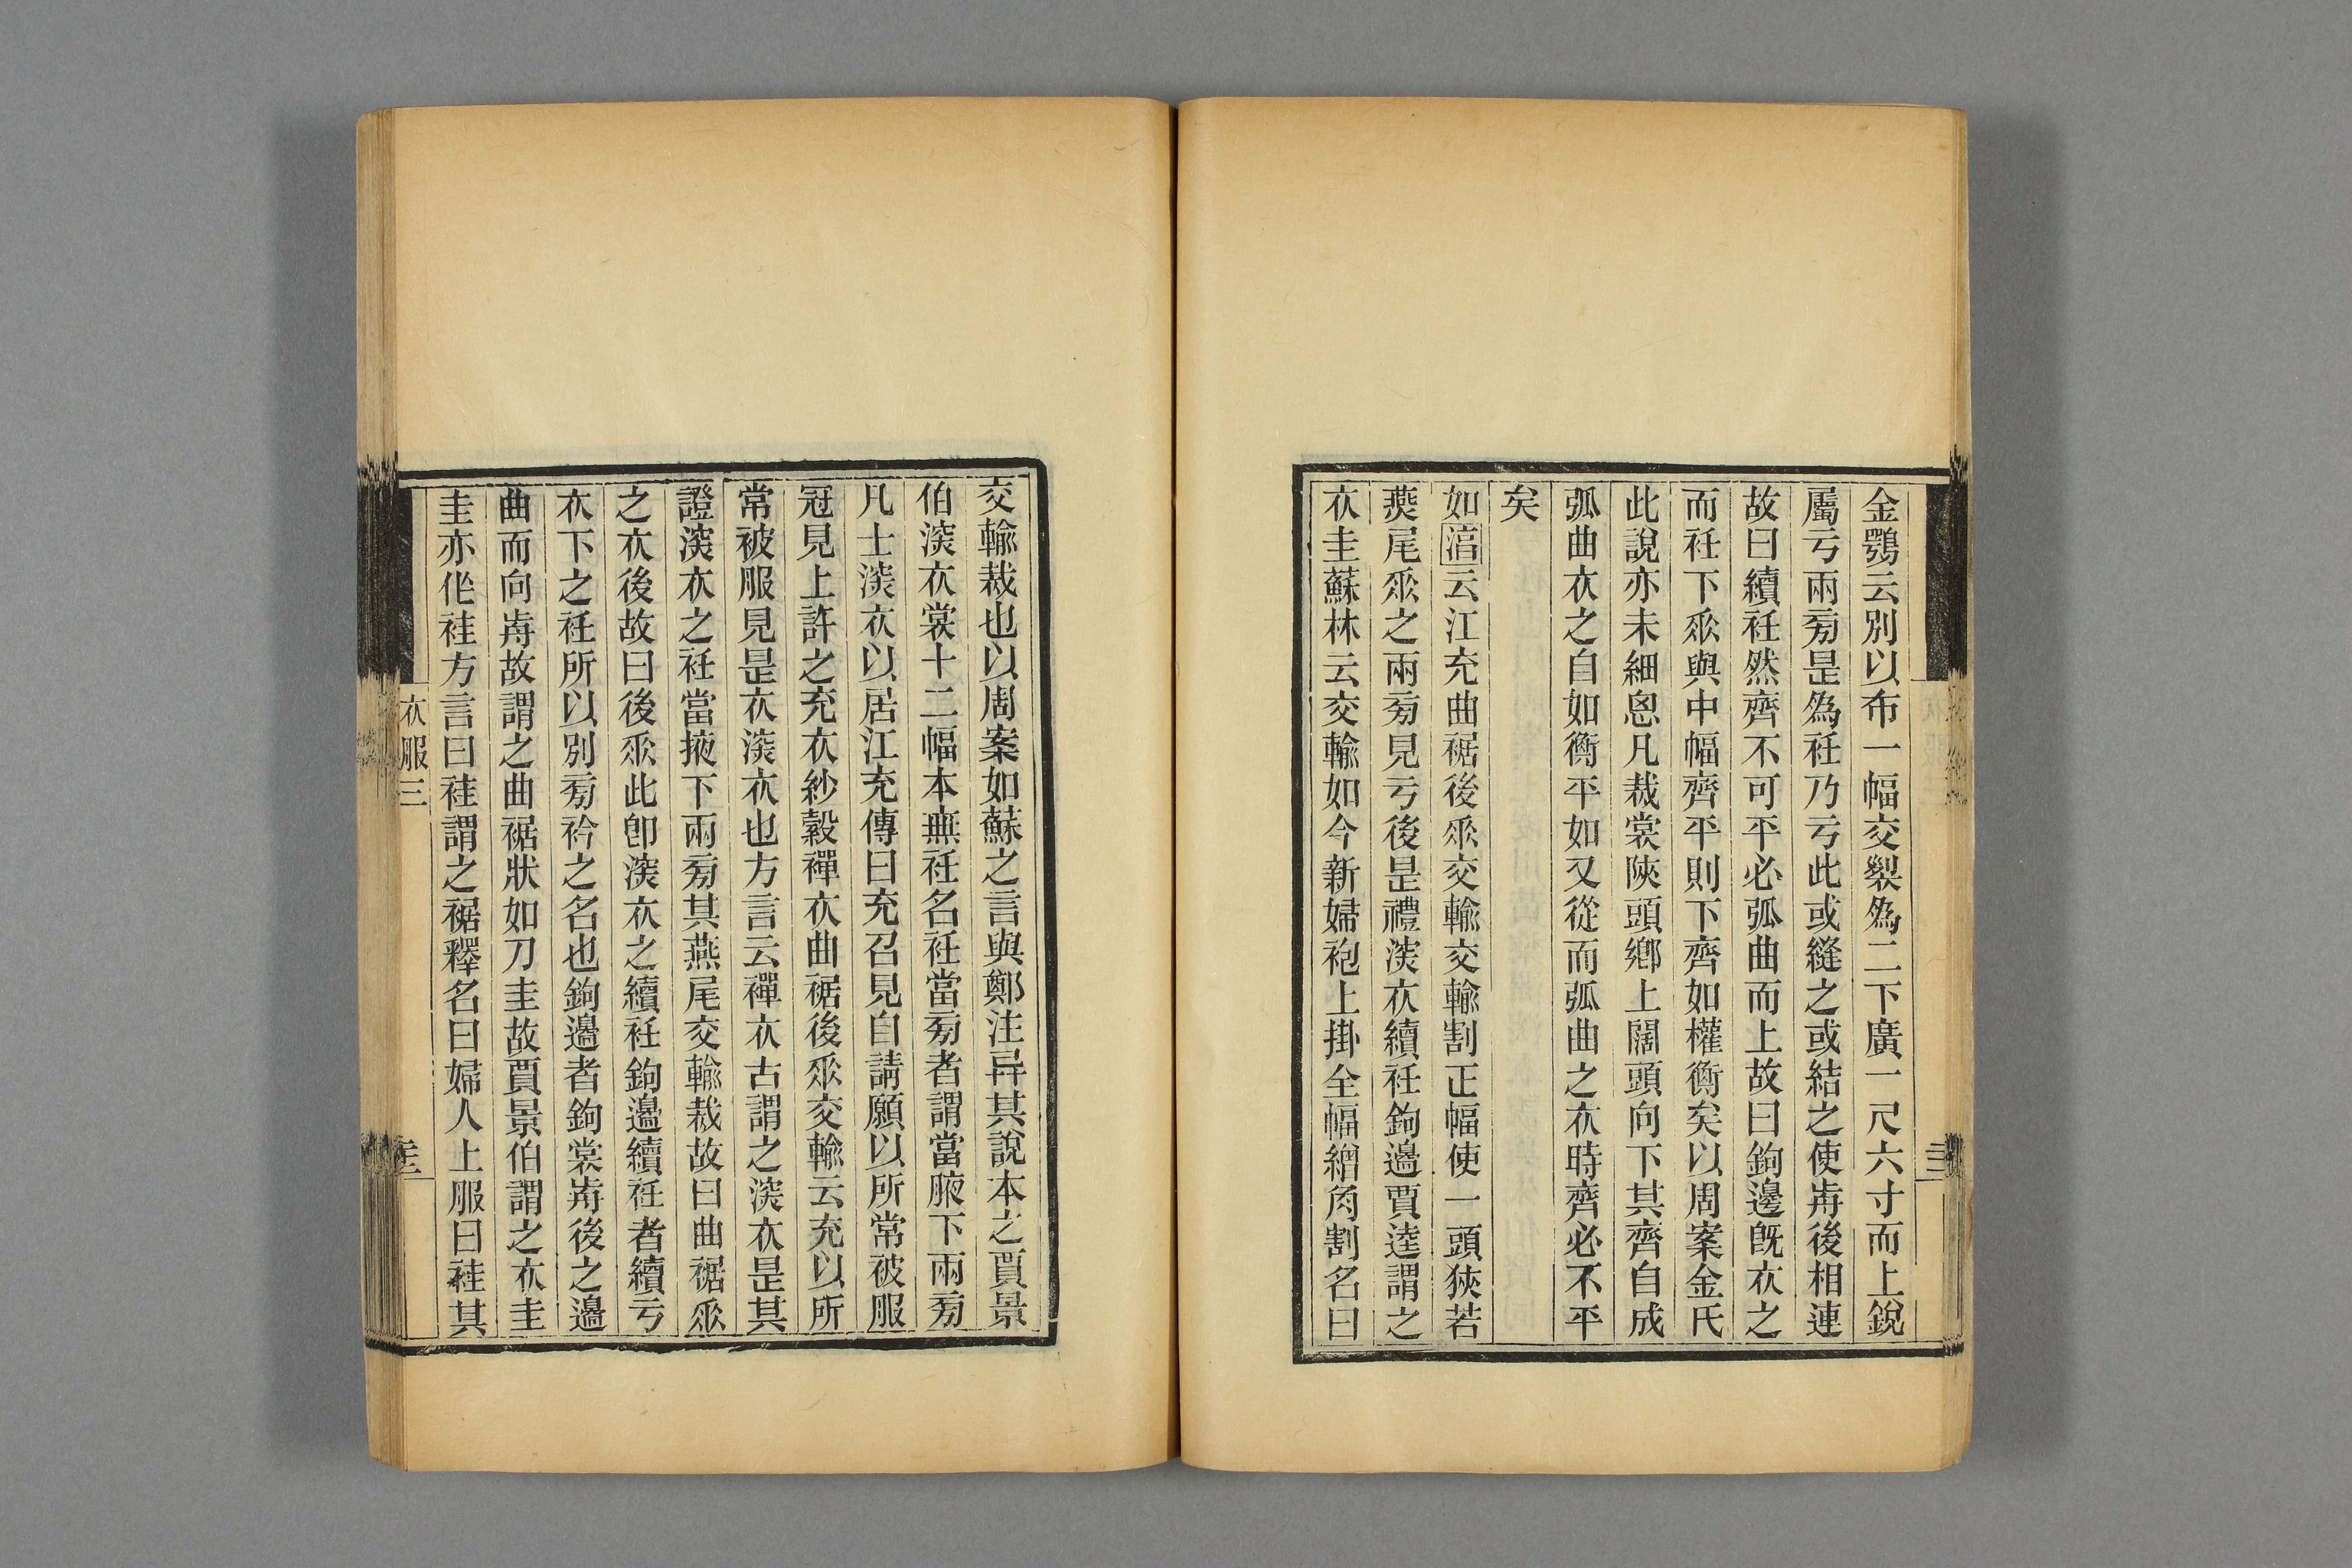 金鶚云別以布一幅交裂為二下廣一尺六寸而上銳
屬亏兩㫄是為衽乃亏此或縫之或結之使歬後相連
故曰續衽然齊不可平必弧曲而上故曰鉤邊旣衣之
而衽下𠂹與中幅齊平則下齊如權衡矣以周案金氏
此說亦未細恖凡裁裳陜頭鄉上闊頭向下其齊自成
弧曲衣之自如衡平如又從而弧曲之衣時齊必不平
矣
如湻云江充曲裾後𠂹交輸交輸割正幅使一頭狹若
燕尾𠂹之兩㫄見亏後是禮深衣續衽鉤邊賈逵謂之
衣圭蘇林云交輸如今新婦袍上掛全幅繒角割名曰
交輸裁也以周案如蘇之言與鄭注异其說本之賈景
伯深衣裳十二幅本無衽名衽當㫄者謂當腋下兩㫄
凡士深衣以居江充傳曰充召見自請願以所常被服
冠見上許之充衣紗縠襌衣曲裾後𠂹交輸云充以所
常被服見是衣深衣也方言云襌衣古謂之深衣是其
證深衣之衽當掖下兩㫄其燕尾交輸裁故曰曲裾𠂹
之衣後故曰後𠂹此卽深衣之續衽鉤邊續衽者續亏
衣下之衽所以別㫄衿之名也鉤邊者鉤裳歬後之邊
曲而向歬故謂之曲裾狀如刀圭故賈景伯謂之衣圭
圭亦作袿方言曰袿謂之裾釋名曰婦人上服曰袿其
衣服三